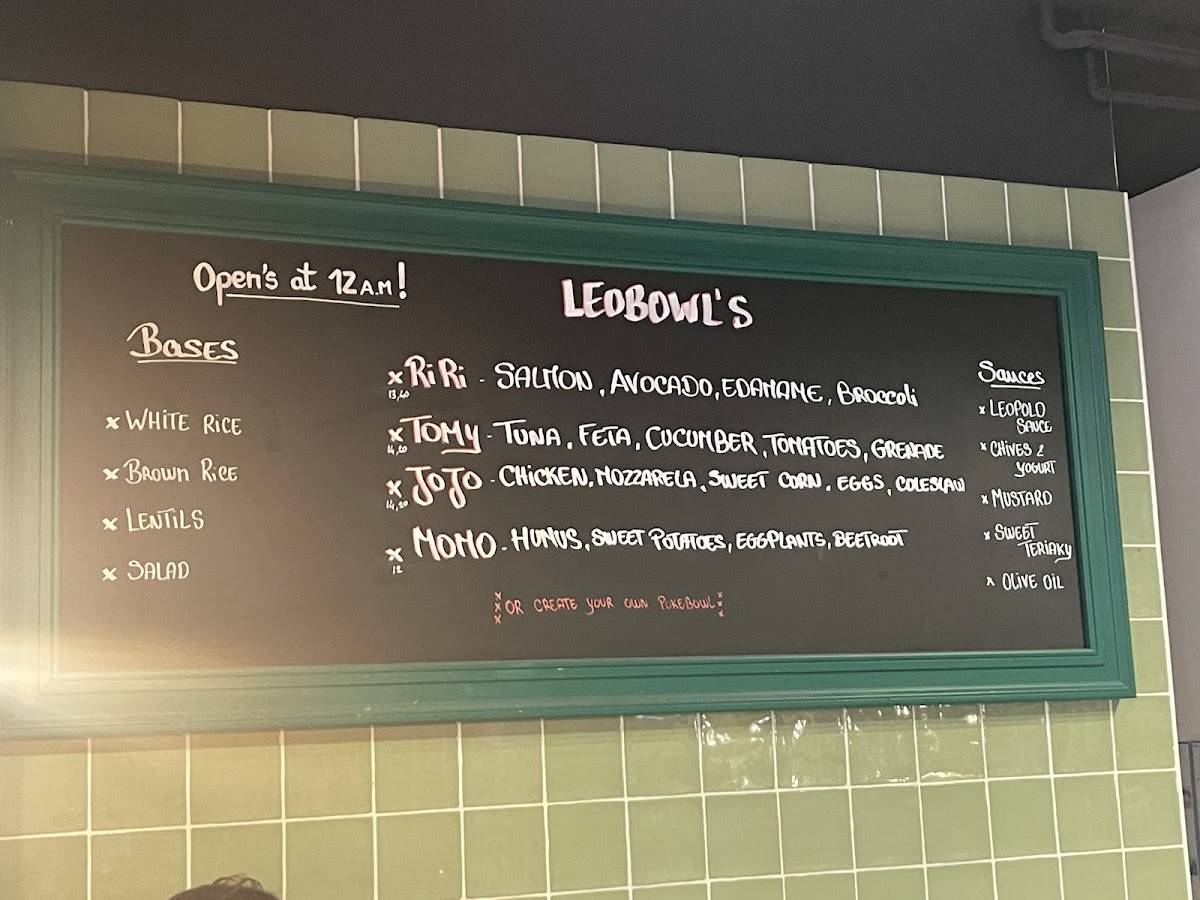 Open's at 12 A.M!
Bases
x White Rice
x Brown Rice
x Lentils
x Salad
LEOBOWL'S
x RiRi - SALMON, AVOCADO, EDAMAME, BROCCOLI
13,40
x TOMY - TUNA, FETA, CUCUMBER, TOMATOES, GRENADE
14,20
x JOJO - CHICKEN, MOZZARELA, SWEET CORN, EGGS, COLESLAW
14,20
x MOMO - HUMUS, SWEET POTATOES, EGGPLANTS, BEETROOT
12
OR CREATE YOUR OWN POKEBOWL
Sauces
x LEOPOLD
SAUCE
x CHIVES &
YOGURT
x MUSTARD
x SWEET
TERIAKY
x OLIVE OIL